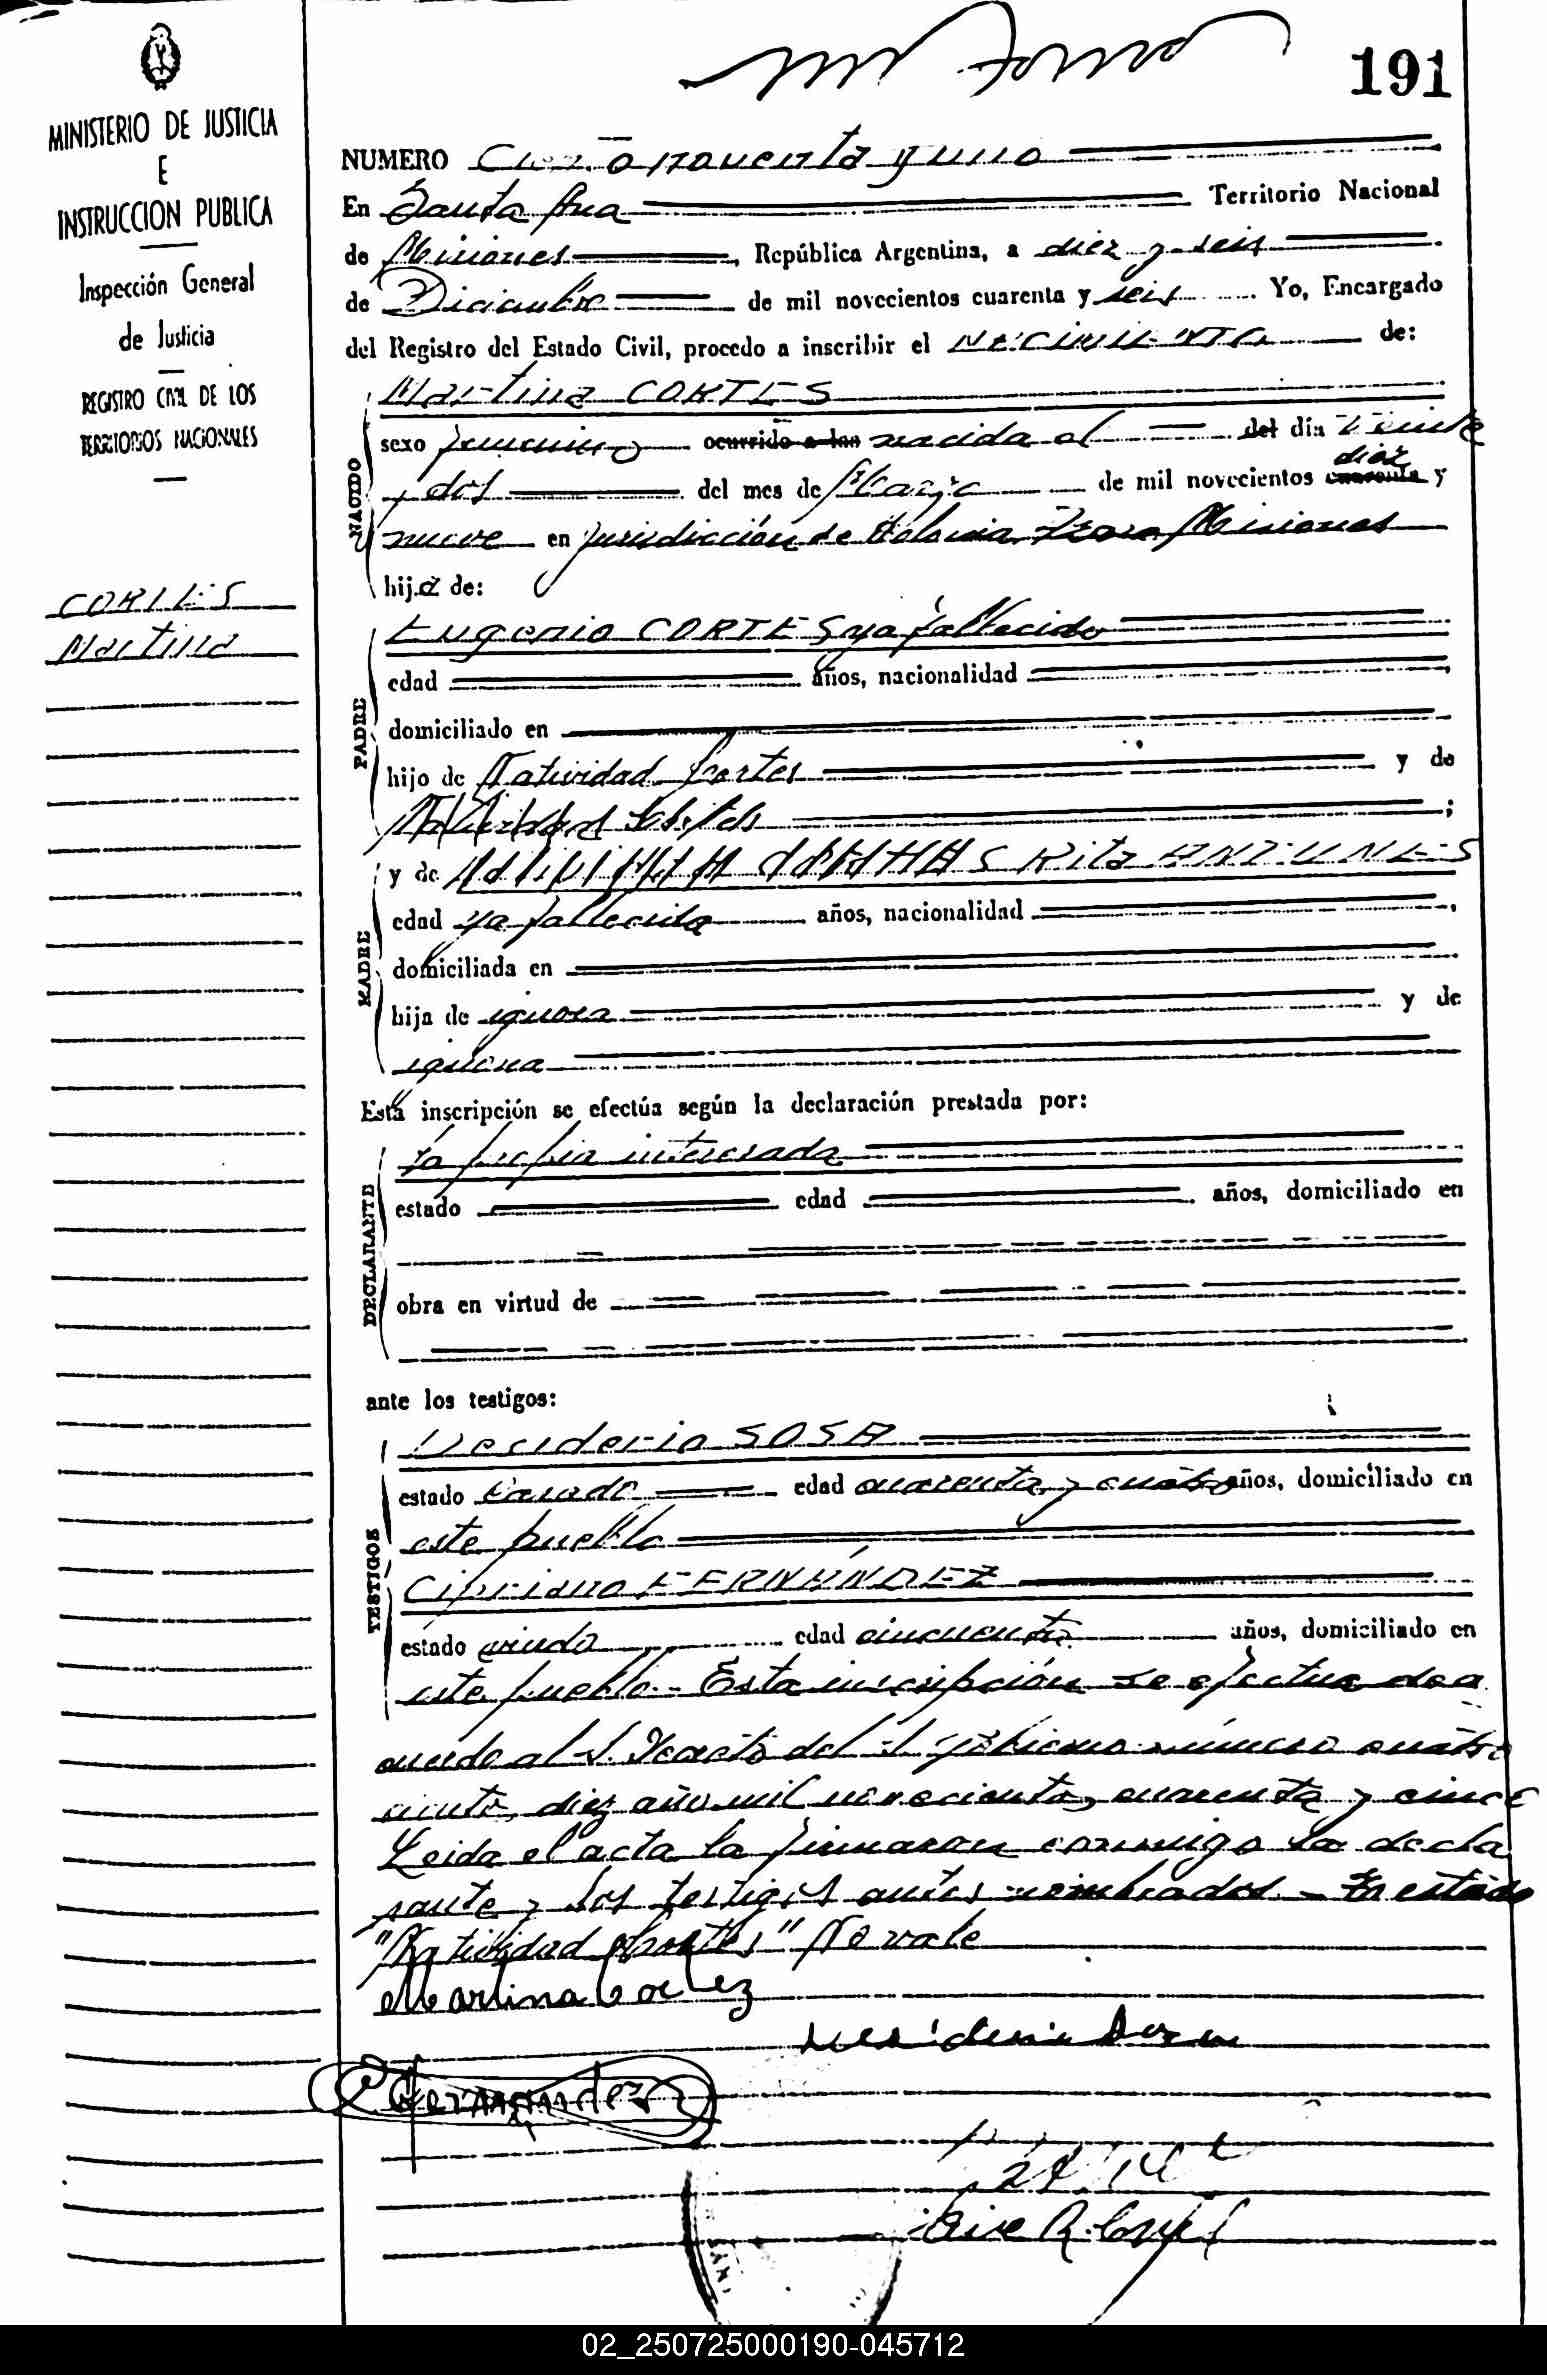 191
MINISTERIO DE JUSTICIA
E
INSTRUCCION PUBLICA
Inspección General
de Justicia
REGISTRO CIVIL DE LOS
TERRITORIOS NACIONALES
CORTES
Martina
NUMERO Ciento noventa y uno
En Santa Ana Territorio Nacional
de Misiones, República Argentina, a diez y seis
de Diciembre de mil novecientos cuarenta y seis Yo, Encargado
del Registro del Estado Civil, procedo a inscribir el nacimiento de:
NACIDO
Martina CORTES
sexo femenino ocurrido a las nacida el del día veinte
y dos del mes de Marzo de mil novecientos cuarenta diez y
nueve en jurisdicción de Colonia Misiones
hija de:
PADRE
Eugenio CORTES ya fallecido
edad años, nacionalidad
domiciliado en
hijo de Natividad Cortes y de
;
MADRE
y de Rita ANTUNES
edad ya fallecida años, nacionalidad
domiciliada en
hija de ignora y de
ignora
Esta inscripción se efectúa según la declaración prestada por:
DECLARANTE
la propia interesada
estado edad años, domiciliado en
obra en virtud de
ante los testigos:
TESTIGOS
Desiderio SOSA
estado casado edad cuarenta y cuatro años, domiciliado en
este pueblo
Cipriano FERNÁNDEZ
estado viudo edad cincuenta años, domiciliado en
este pueblo.- Esta inscripción se efectua de a
cuerdo al S. Decreto del S. gobierno número cuatro
ciento diez año mil novecientos cuarenta y cinco
Leida el acta la firmaran conmigo la decla
rante y los testigos antes nombrados.- Testado
"Natividad Cortes" No vale
Martina Cortez
Desiderio Sosa
C Fernandez
02_250725000190-045712